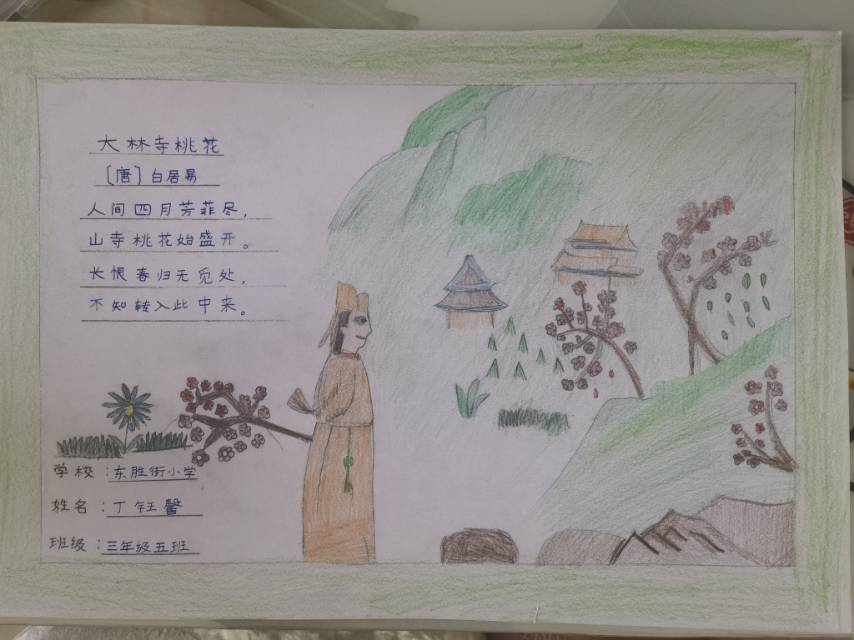 大林寺桃花
〔唐〕白居易
人间四月芳菲尽，
山寺桃花始盛开。
长恨春归无觅处，
不知转入此中来。
学校：东胜街小学
姓名：丁钰馨
班级：三年级五班